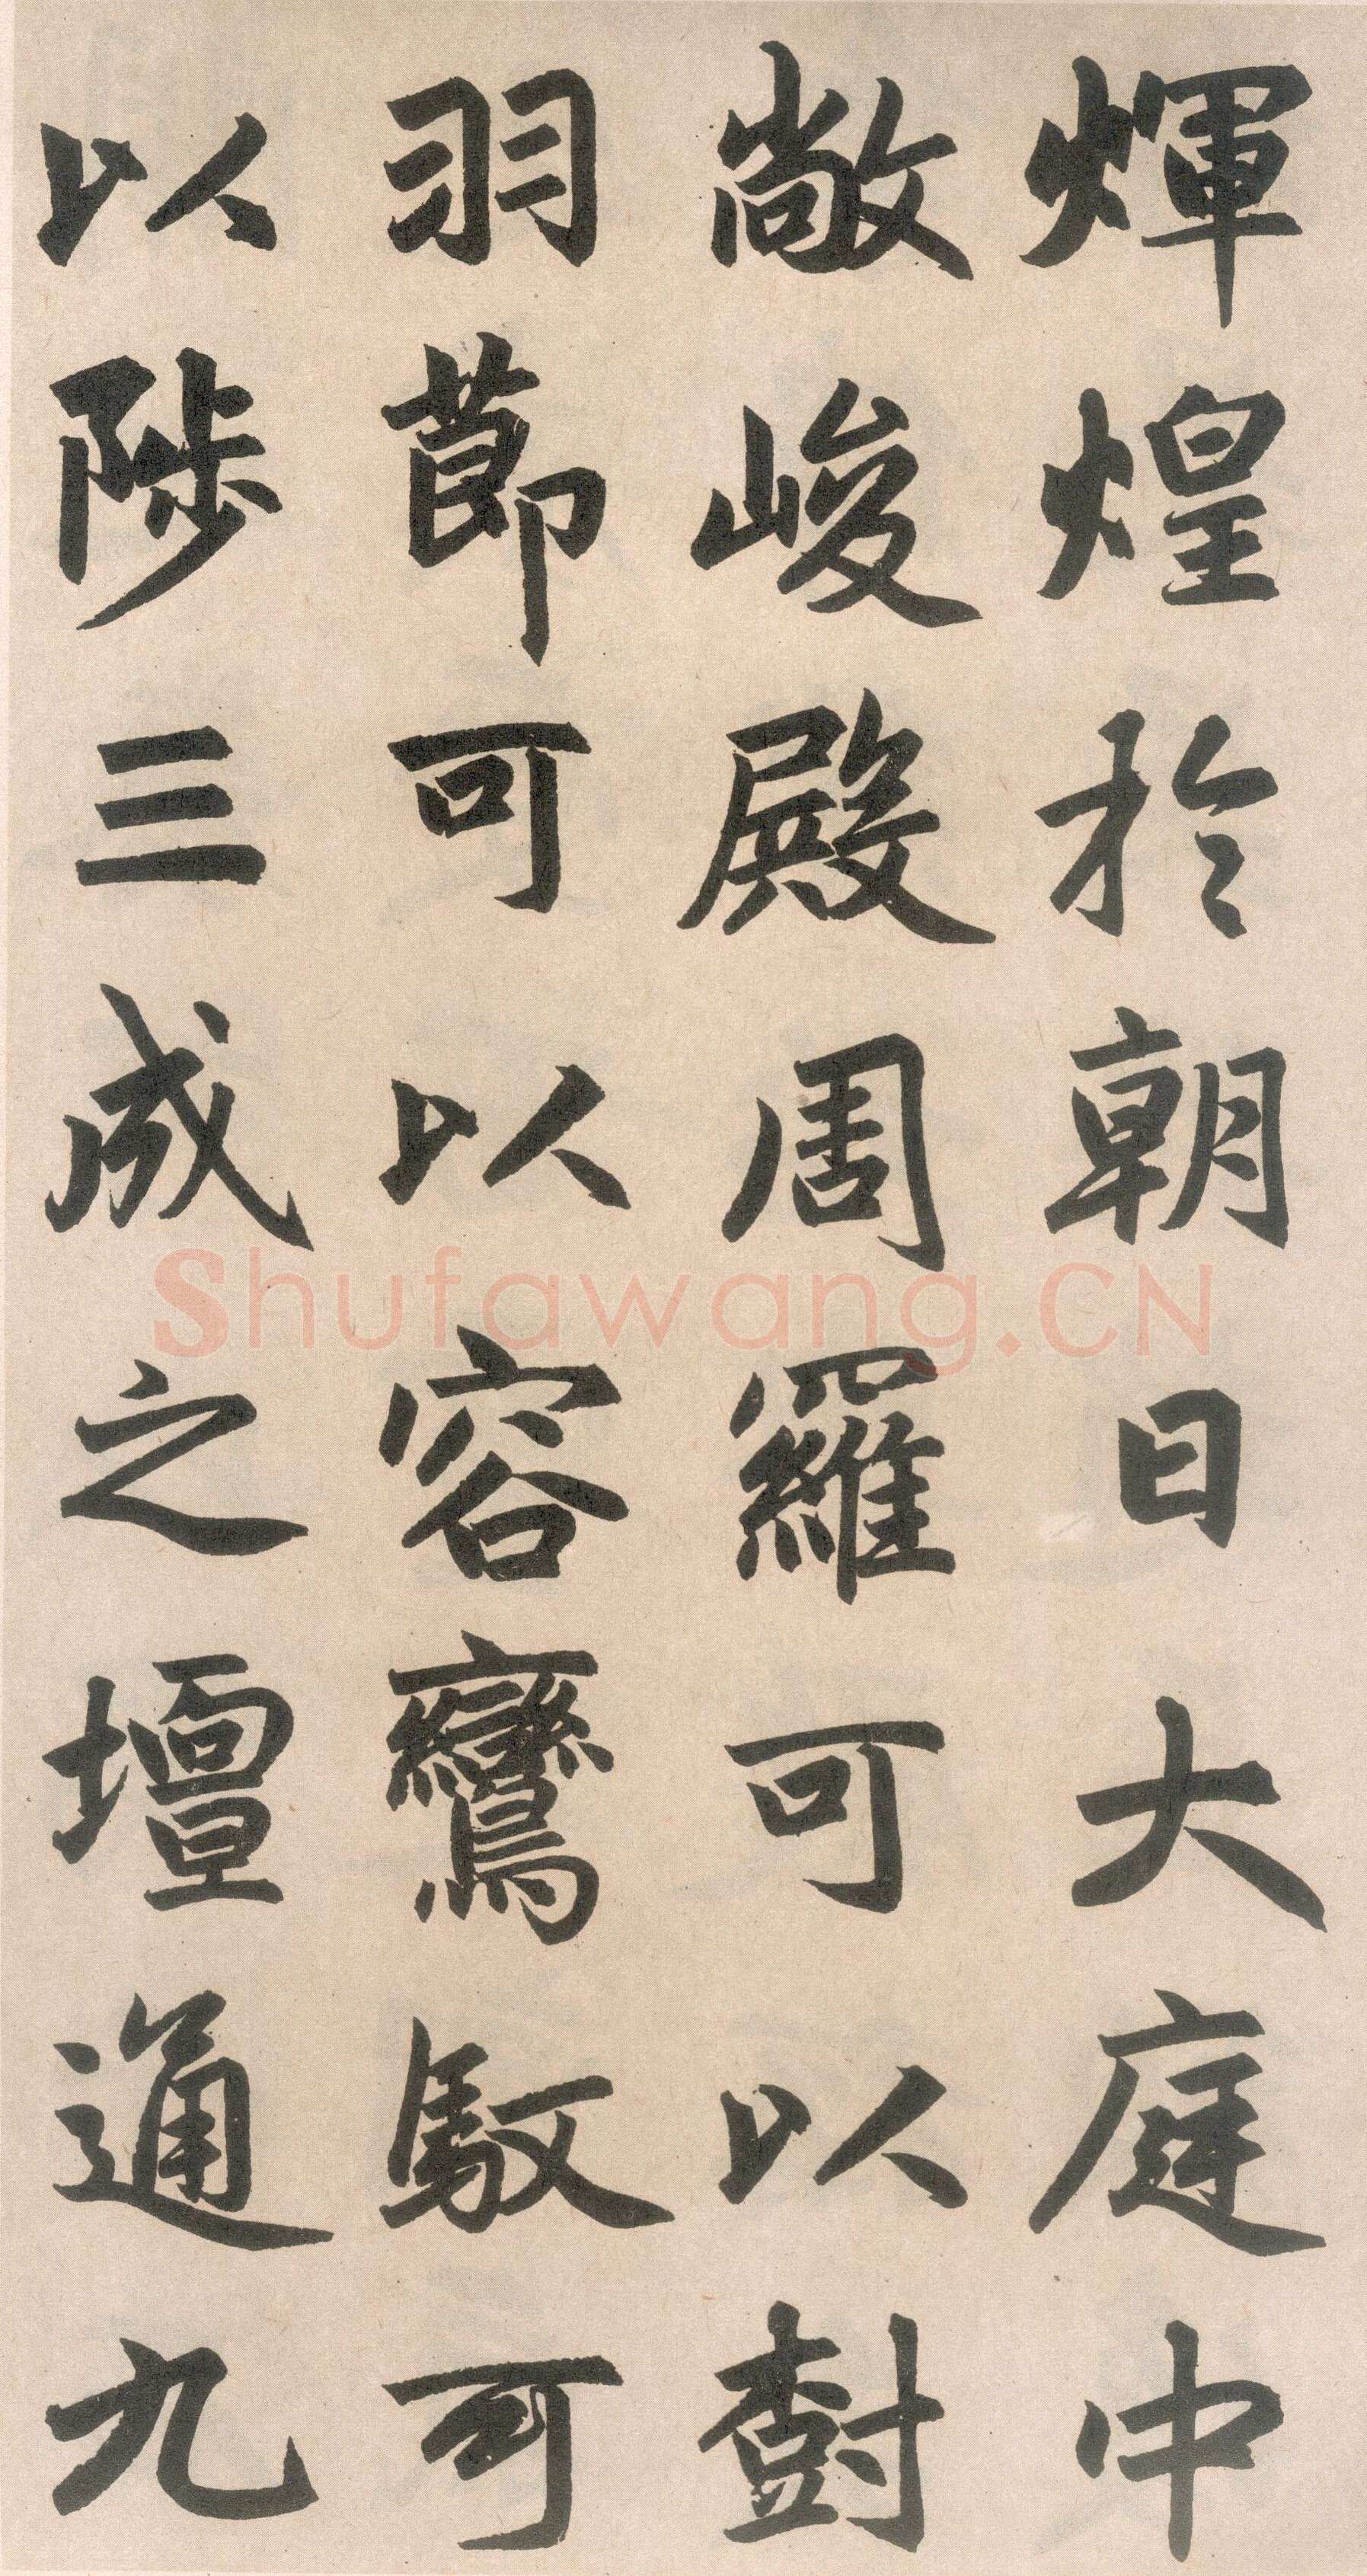 煇煌於朝日大庭中
敞峻殿周羅可以𣗳
羽莭可以容鸞馭可
以陟三成之壇通九
Shufawang.CN